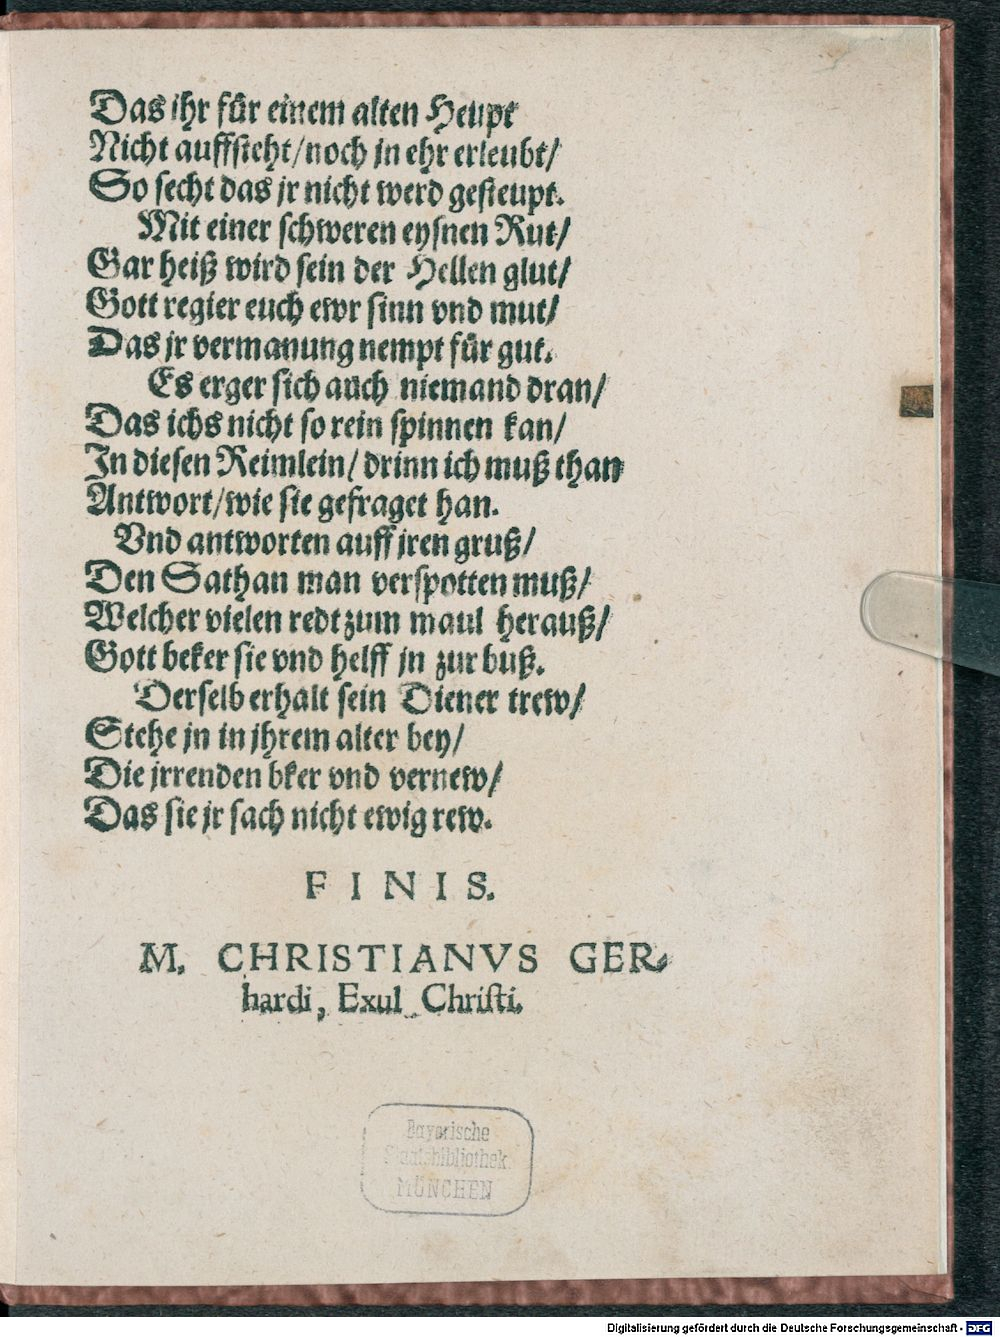 Das ihr für einem alten Heupt
Nicht auffsteht/noch in ehr erleubt/
So secht das jr nicht werd gesteupt.
Mit einer schweren eysnen Rut/
Gar heiß wird sein der Hellen glut/
Gott regier euch ewr sinn vnd mut/
Das jr vermanung nempt für gut.
Es erger sich auch niemand dran/
Das ichs nicht so rein spinnen kan/
In diesen Reimlein/ drinn ich muß than
Antwort/wie sie gefraget han.
Vnd antworten auff jren gruß/
Den Sathan man verspotten muß/
Welcher vielen redt zum maul herauß/
Gott beker sie vnd helff jn zur buß.
Derselb erhalt sein Diener trew/
Stehe jn in jhrem alter bey/
Die jrrenden bker vnd vernew/
Das sie jr sach nicht ewig rew.
FINIS.
M. CHRISTIANVS GER-
hardi, Exul Christi.
Bayerische
Staatsbibliothek
MÜNCHEN
Digitalisierung gefördert durch die Deutsche Forschungsgemeinschaft - DFG